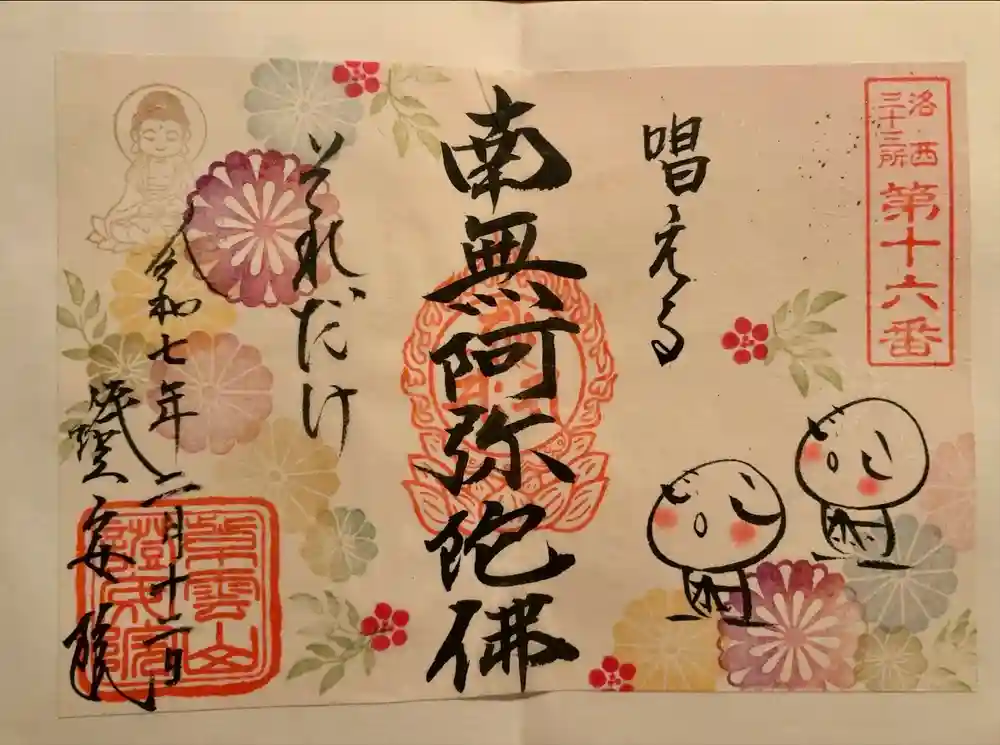 洛西
三十三所
第十六番
唱える
南無阿弥陀佛
それだけ
令和七年二月十二日
紫雲山